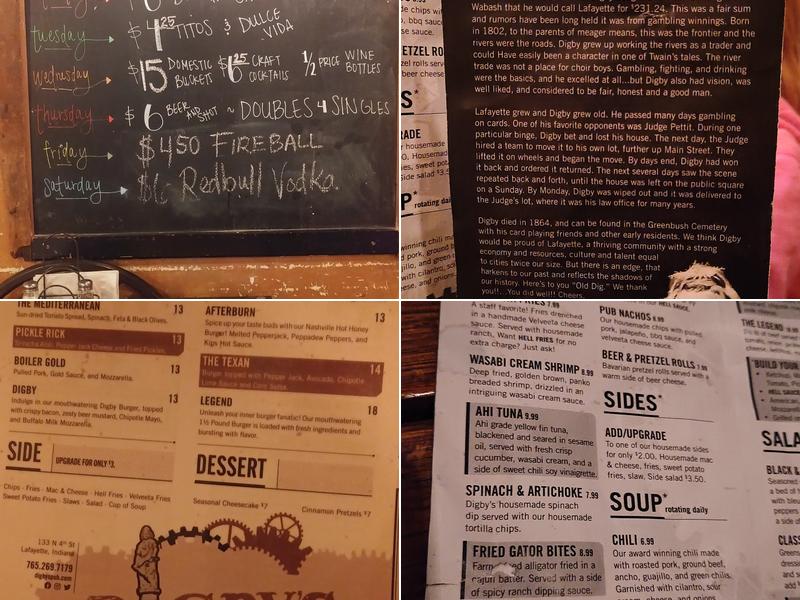 tuesday → $4.25 TITOS & DULCE VIDA
wednesday → $15 DOMESTIC BUCKETS $6.25 CRAFT COCKTAILS 1/2 PRICE WINE BOTTLES
thursday → $6 BEER AND SHOT ~ DOUBLES 4 SINGLES
friday → $4.50 FIREBALL
saturday → $6 Redbull Vodka.
Wabash that he would call Lafayette for $231.24. This was a fair sum
and rumors have been long held it was from gambling winnings. Born
in 1802, to the parents of meager means, this was the frontier and the
rivers were the roads. Digby grew up working the rivers as a trader and
could Have easily been a character in one of Twain's tales. The river
trade was not a place for choir boys. Gambling, fighting, and drinking
were the basics, and he excelled at all...but Digby also had vision, was
well liked, and considered to be fair, honest and a good man.
Lafayette grew and Digby grew old. He passed many days gambling
on cards. One of his favorite opponents was Judge Pettit. During one
particular binge, Digby bet and lost his house. The next day, the Judge
hired a team to move it to his own lot, further up Main Street. They
lifted it on wheels and began the move. By days end, Digby had won
it back and ordered it returned. The next several days saw the scene
repeated back and forth, until the house was left on the public square
on a Sunday. By Monday, Digby was wiped out and it was delivered to
the Judge's lot, where it was his law office for many years.
Digby died in 1864, and can be found in the Greenbush Cemetery
with his card playing friends and other early residents. We think Digby
would be proud of Lafayette, a thriving community with a strong
economy and resources, culture and talent equal
to cities twice our size. But there is an edge, that
harkens to our past and reflects the shadows of
our history. Here's to you "Old Dig." We thank
you!!...You did well!! Cheers.
THE MEDITERRANEAN 13
Sun-dried Tomato Spread, Spinach, Feta & Black Olives.
PICKLE RICK 13
Sriracha Aioli, Pepper Jack Cheese and Fried Pickles.
BOILER GOLD 13
Pulled Pork, Gold Sauce, and Mozzarella.
DIGBY 13
Indulge in our mouthwatering Digby Burger, topped
with crispy bacon, zesty beer mustard, Chipotle Mayo,
and Buffalo Milk Mozzarella.
SIDE UPGRADE FOR ONLY $3.
Chips - Fries - Mac & Cheese - Hell Fries - Velveeta Fries
Sweet Potato Fries - Slaws - Salad - Cup of Soup
AFTERBURN 13
Spice up your taste buds with our Nashville Hot Honey
Burger! Melted Pepperjack, Peppadew Peppers, and
Kigs Hot Sauce.
THE TEXAN 14
Burger topped with Pepper Jack, Avocado, Chipotle
Lime Sauce and Corn Salsa.
LEGEND 18
Unleash your inner burger fanatic! Our mouthwatering
1½ Pound Burger is loaded with fresh ingredients and
bursting with flavor.
DESSERT
Seasonal Cheesecake $7 Cinnamon Pretzels $7
133 N 4th St
Lafayette, Indiana
765.269.7179
digbyspub.com
DIGBY'S
A staff favorite! Fries drenched
in a handmade Velveeta cheese
sauce. Served with housemade
ranch. Want HELL FRIES for no
extra charge? Just ask!
WASABI CREAM SHRIMP 8.99
Deep fried, golden brown, panko
breaded shrimp, drizzled in an
intriguing wasabi cream sauce.
AHI TUNA 9.99
Ahi grade yellow fin tuna,
blackened and seared in sesame
oil, served with fresh crisp
cucumber, wasabi cream, and a
side of sweet chili soy vinaigrette.
SPINACH & ARTICHOKE 7.99
Digby's housemade spinach
dip served with our housemade
tortilla chips.
FRIED GATOR BITES 8.99
Farm-raised alligator fried in a
cajun batter. Served with a side
of spicy ranch dipping sauce.
PUB NACHOS 8.99
Our housemade chips with pulled
pork, jalapeño, bbq sauce, and
velveeta cheese sauce.
BEER & PRETZEL ROLLS 7.99
Bavarian pretzel rolls served with a
warm side of beer cheese.
SIDES*
ADD/UPGRADE
To one of our housemade sides
for only $2.00. Housemade mac
& cheese, fries, sweet potato
fries, slaw. Side salad $3.50.
SOUP* rotating daily
CHILI 6.99
Our award winning chili made
with roasted pork, ground beef,
ancho, guajillo, and green chilis.
Garnished with cilantro, sour
cream, cheese, and onions.
THE LEGEND
BUILD YOUR